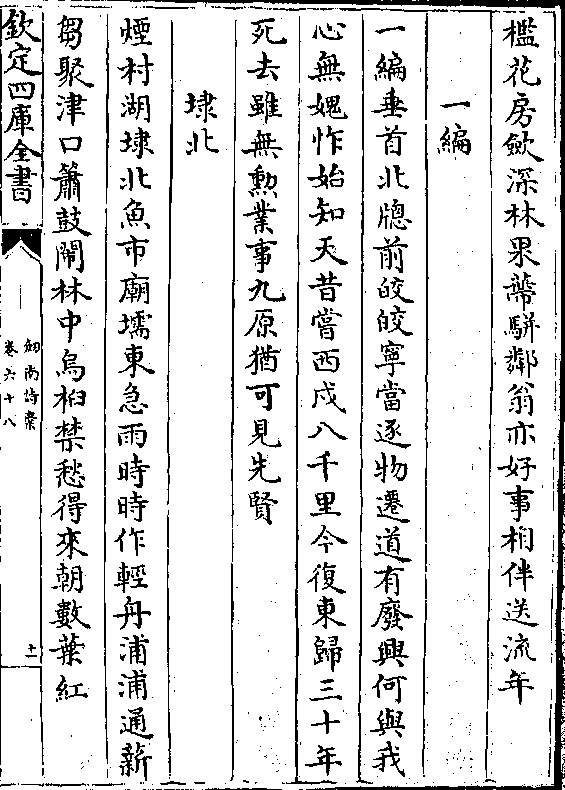 檻花房歛深林果蔕駢鄰翁亦好事相伴送流年
一編
一編垂首北牕前皎皎寧當逐物遷道有廢興何與我
心無媿怍始知天昔嘗西戍八千里今復東歸三十年
死去雖無勲業事九原猶可見先賢
埭北
煙村湖埭北魚市廟壖東急雨時時作輕舟浦浦通薪
芻聚津口簫鼓鬧林中烏桕禁愁得來朝數葉紅
欽定四庫全書
劒南詩槀
卷六十八
十一